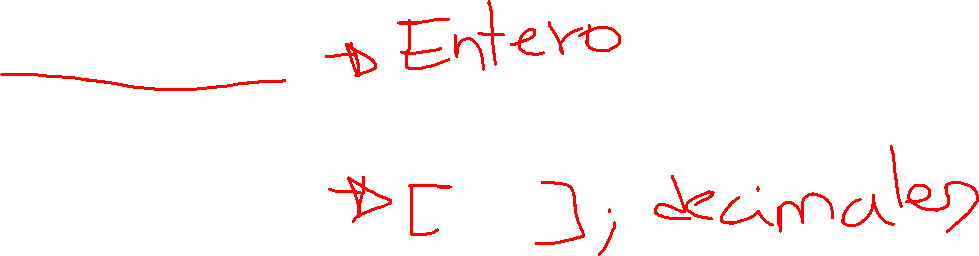 → Entero
→ [ ]; decimales